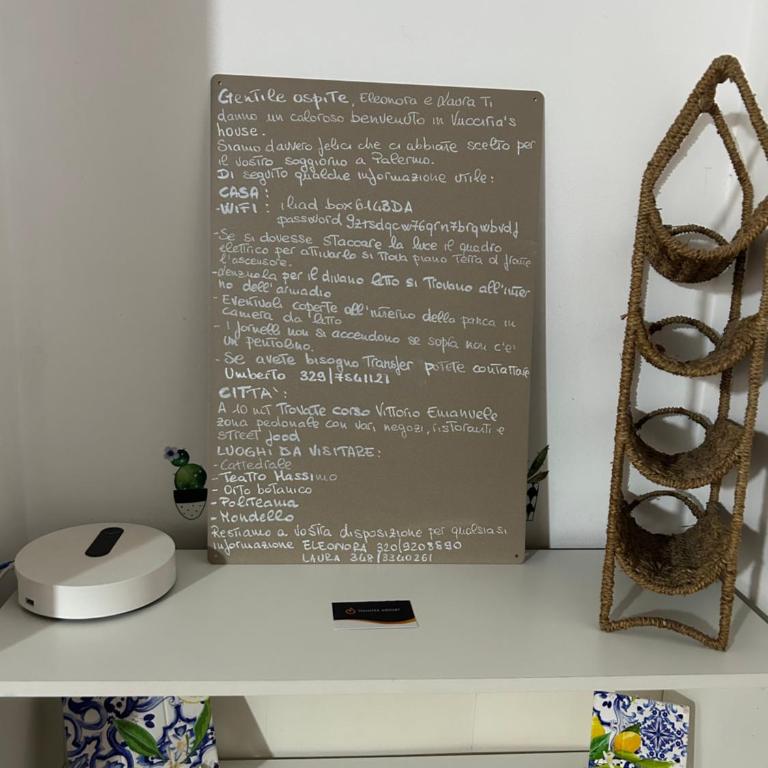 Gentile ospite, Eleonora e Laura Ti
danno un caloroso benvenuto in Vucciria's
house.
Siamo davvero felici che ci abbiate scelto per
il vostro soggiorno a Palermo.
Di seguito qualche informazione utile:
CASA:
-WIFI: iliad box 6143DA
password 9ztsdqcw76qrn7brqwbvdj
-Se si dovesse staccare la luce il quadro
elettrico per attivarlo si trova piano terra di fronte
l'ascensore.
-Lenzuola per il divano letto si trovano all'inter
no dell'armadio
- Eventuali coperte all'interno della panca in
camera da letto
- I fornelli non si accendono se sopra non c'è
un pentolino.
- Se avete bisogno Transfer potete contattare
Umberto 329/7541121
CITTA':
A 10 mt Trovate corso Vittorio Emanuele
zona pedonale con vari negozi, ristoranti e
street food
LUOGHI DA VISITARE:
- Cattedrale
- Teatro Massimo
- Orto botanico
- Politeama
- Mondello
Restiamo a vostra disposizione per qualsiasi
informazione ELEONORA 320/9208590
LAURA 348/3340261